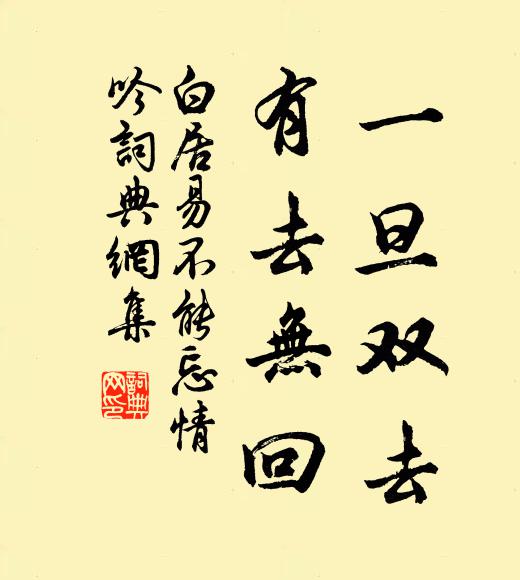 一旦双去
有去無回
白居易不能忘情
吟詞典網集
詞典网印